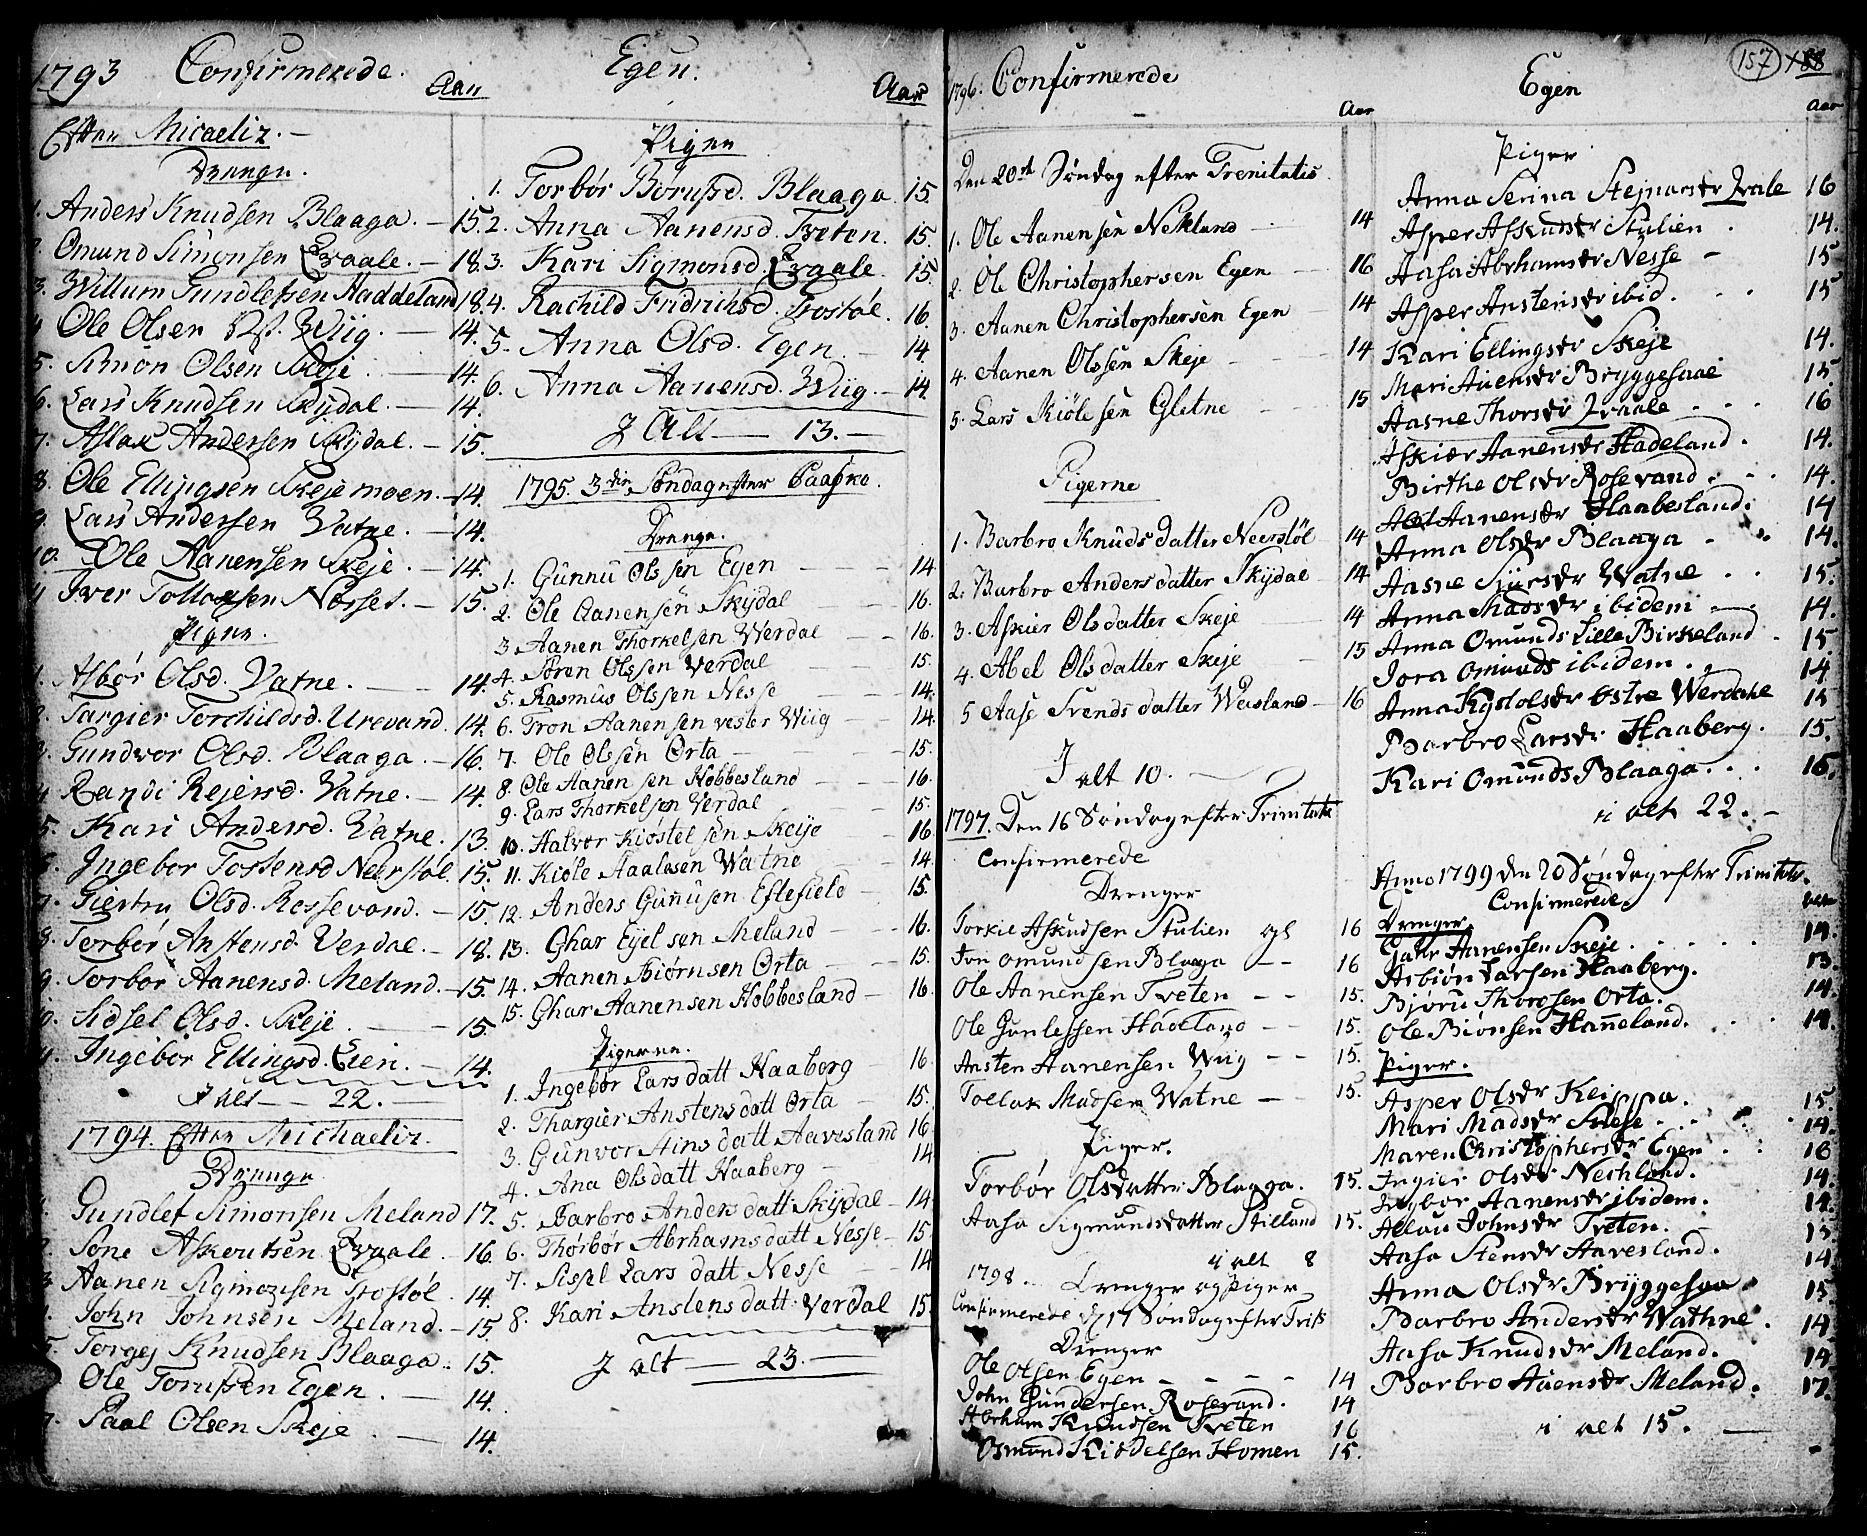 1793 Confirmerede.
Aar
Efter Micaelis.
Drenge.
1. Anders Knudsen Blaaga. 15.
2. Omund Simonsen Qvaale. 18.
3. Willum Gundlefsen Haddeland 18.
4. Ole Olsen Wiig. 14.
5. Simon Olsen Skeje. 14.
6. Lars Knudsen Skÿdal. 14.
7. Aslak Andersen Skÿdal. 15.
8. Ole Ellingsen Skejemoen. 14.
9. Lars Andersen Vatne. 14.
10. Ole Aanensen Skeje. 14.
11. Iver Nosset. 15.
Piger.
1. Asbør Olsd. Vatne. 14.
2. Targier Torchildsd. Urevand. 14.
3. Gundvor Olsd. Blaaga. 16.
4. Randi Rejersd. Vatne. 14.
5. Kari Andersd. Vatne. 13.
6. Ingebor Tostensd. Neerstøl. 15.
7. Giertru Olsd. Rossevand. 15.
8. Torbør Anstensd. Verdal. 18.
9. Torbor Aanensd. Meland. 15.
10. Sidsel Olsd. Skeje. 15.
11. Ingebor Ellingsd. Lien. 14.
I alt 22.
1794. Efter Michaelis.
Drenge
Gundlef Simonsen Meland 17.
2. Sone Askoutsen Qvaale. 16.
3. Aanen Sigmonsen Frostøl. 14.
4. John Johnsen Meland. 15.
5. Torgej Knudsen Blaaga. 15.
Ole Torufsen Egen. 14.
7. Paal Olsen Skeje. 14.
Egen.
Aar
Piger
1. Torbør Borufsd. Blaaga. 15.
2. Anna Aanensd. Tveten. 15.
3. Kari Sigmonsd. Qvaale. 15.
4. Rachild Fridrichsd. Frostøl. 16.
5. Anna Olsd. Egen. 14
6. Anna Aanensd. Wiig. 14.
I Alt 13.
1795. 3die Søndag efter Paaske.
Drenge.
1. Gunnu Olssen Egen 14
2. Ole Aanensen Skÿdal 16.
3. Aanen Thorkelsen Werdal 16.
4. Søren Olssen Verdal 15.
5. Rasmus Olssen Nesse 14.
6. Tron Aanensen vester Wiig 14.
7. Ole Olssen Orta 15.
8. Ole Aanensen Hobbesland 16.
9. Lars Thorkelsen Verdal 15.
10. Halvor Kiøstelsen Skeÿe 16
11. Kiøle Aaalesen Watne 14.
12. Anders Gunnusen Eftefield 15.
13. Ghar Eÿelsen Meland 16.
14. Aanen Biørnsen Orta 15.
15. Ghar Aanensen Hobbesland 16.
Pigerne.
1. Ingebør Larsdatt Haaberg 16
2. Thargier Anstensdatt Orta 15.
3. Gunvor Ainsdatt Aavesland 16
4. Ana Olsdatt Haaberg 14
5. Barbro Andersdatt Skÿdal 14
6. Thørbør Abrhamsdatt Nesse 15.
7. Sissel Larsdatt Nesse 14
8. Kari Anstensdatt Verdal 15.
I alt 23.
1796. Confirmerede
Aar
Den 20de Søndag efter Trenitatis
1. Ole Aanensen Nekland 14
2. Ole Christophersen Egen 16
3. Aanen Christophersen Egen 14
4. Aanen Olssen Skeje 14
5. Lars Kiølesen Gletne 15
Pigerne
1. Barbro Knudsdatter Neerstøl 14
2. Barbro Andersdatter Skÿdal 14
3. Askier Olsdatter Skeje 14
4. Abel Olsdatter Skeje 15
5 Aase Svendsdatter Weisland 16
I alt 10.
1797. Den 16 Søndag efter Trinitatis
Confirmerede
Drenger
Torkil Askudsen Stulien 16
Jon Omundsen Blaaga 16
Ole Aanensen Tveten 15.
Ole Gunlefsen Hadeland 15.
Ansten Aanensen Wiig 15.
Tollak Madsen Watne 15.
Piger.
Torbør Olsdatter Blaaga. 15.
Aasa Sigmundsdatter Stilland 15.
i alt 8
1798. Drenger og Piger
Confirmerede d 17 Søndag efter Trit
Drenger
Ole Olsen Egen 14
John Gundersen Rosevand. 14
Abrham Knudsen Tveten 16
Osmund Kiddelsen Homen 15.
Egen
157 188
Aar
Piger
Anna Serina Stejnarsdr Qvale 16
Asper Askudsdr Stulien. 14.
Aasa Abrhamsdr Nesse 15
Asper Anstensdr ibid. 15
Kari Ellingsdr Skeje 14.
Mari Auensdr Bryggesaae 15.
Aasne Thorsdr Qvaale. 16
Askier Aanensdr Hadeland. 14.
Birthe Olsdr Rosevand. 14.
Abel Aanensdr Haabesland. 14
Anna Olsdr Blaaga 14.
Aasne Siursdr Watne 15.
Anna Madsdr ibidem 14.
Anna Omunds Lille Birkeland 15.
Jora Omunds ibidem. 14
Anna Kystolsdr østre Werdahl 15
Barbro Larsdr Haaberg. 15.
Kari Omunds Blaaga. 15.
i alt 22.
Anno 1799 den 20 Søndag efter Trinitatis.
Confirmerede.
Drenger. Aar
Gahr Aanensen Skeje. 14.
Asbiøn Larsen Haaberg. 13.
Bjørn Thorgsen Orta. 14
Ole Biønsen Hanneland. 14.
Piger.
Asper Olsdr Kleppa. 15.
Mari Madsdr Skeje. 14.
Maren Christophersdr Egen 16
Ingier Olsdr Nechland. 14.
Ingbor Aanensdr ibidem. 14.
Allau Johnsdr Tveten. 15
Aasa Stensdr Aavesland. 14
Anna Olsdr Brÿggesaa. 15.
Barbro Andersdr Wathne. 14
Aasa Knudsdr Meland. 14
Barbro Auensdr Meland. 17.
i alt 15.